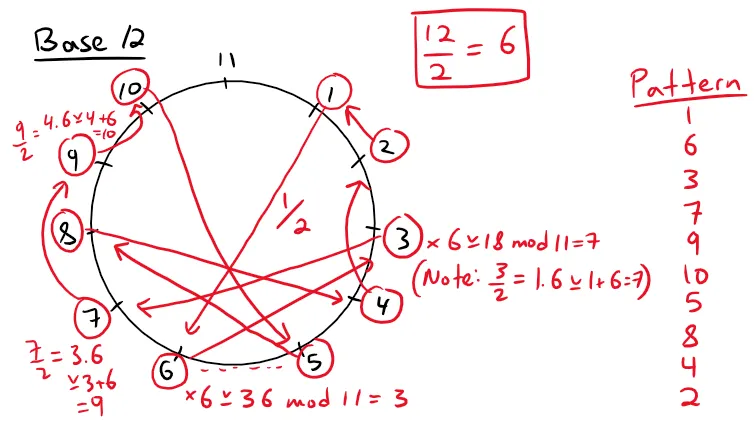 Base 12
12/2 = 6
Pattern
1
6
3
7
9
10
5
8
4
2
11
10
1
9/2 = 4.6 ⊻ 4+6
=10
9
2
1/2
8
3 × 6 ⊻ 18 mod 11 = 7
(Note: 3/2 = 1.6 ⊻ 1+6=7)
4
7
7/2 = 3.6
⊻ 3+6
= 9
6
5
× 6 ⊻ 36 mod 11 = 3